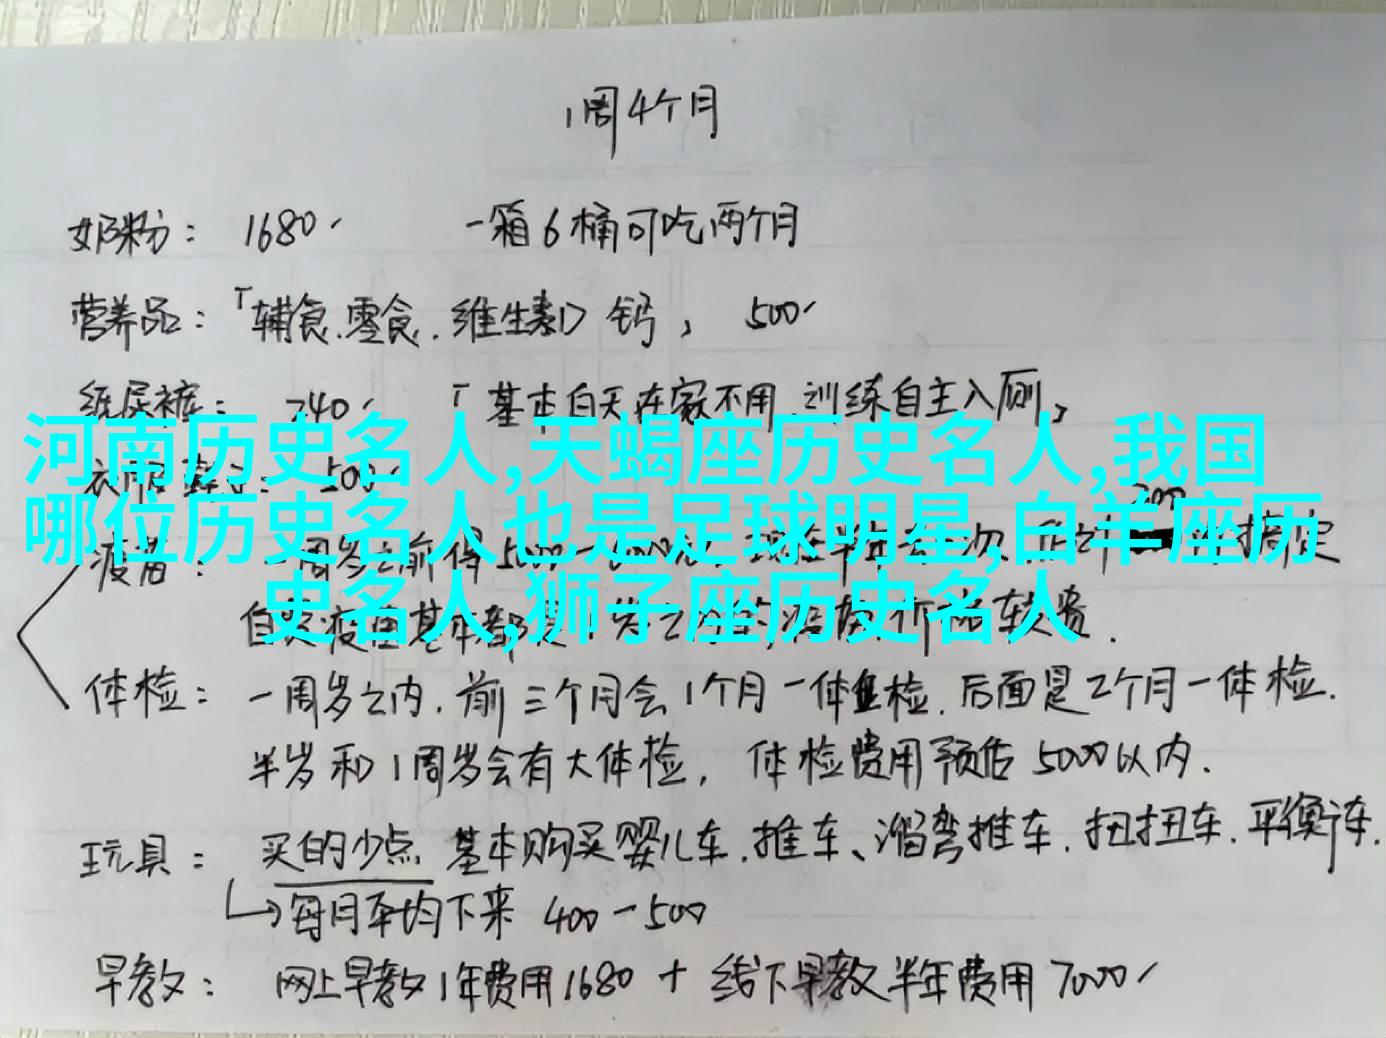 1周4个月
奶粉： 1680 一箱6桶可吃两个月
营养品：「辅食.零食.维生素D 钙， 500
纸尿裤： 240 「基本白天在家不用 训练自主入厕，
500
河南历史名人,天蝎座历史名人,我国
哪位历史名人也是足球明星,白羊座历
史名人,狮子座历史名人
疫苗：
体检： 一周岁之内.前三个月会1个月一体检.后面是2个月一体检.
半岁和1周岁会有大体检， 体检费用预估5000以内.
玩具： 买的少点 基本购买婴儿车.推车、溜弯推车.扭扭车.平衡车.
每月平均下来 400-500
早教： 网上早教1年费用1680 + 线下早教半年费用7000